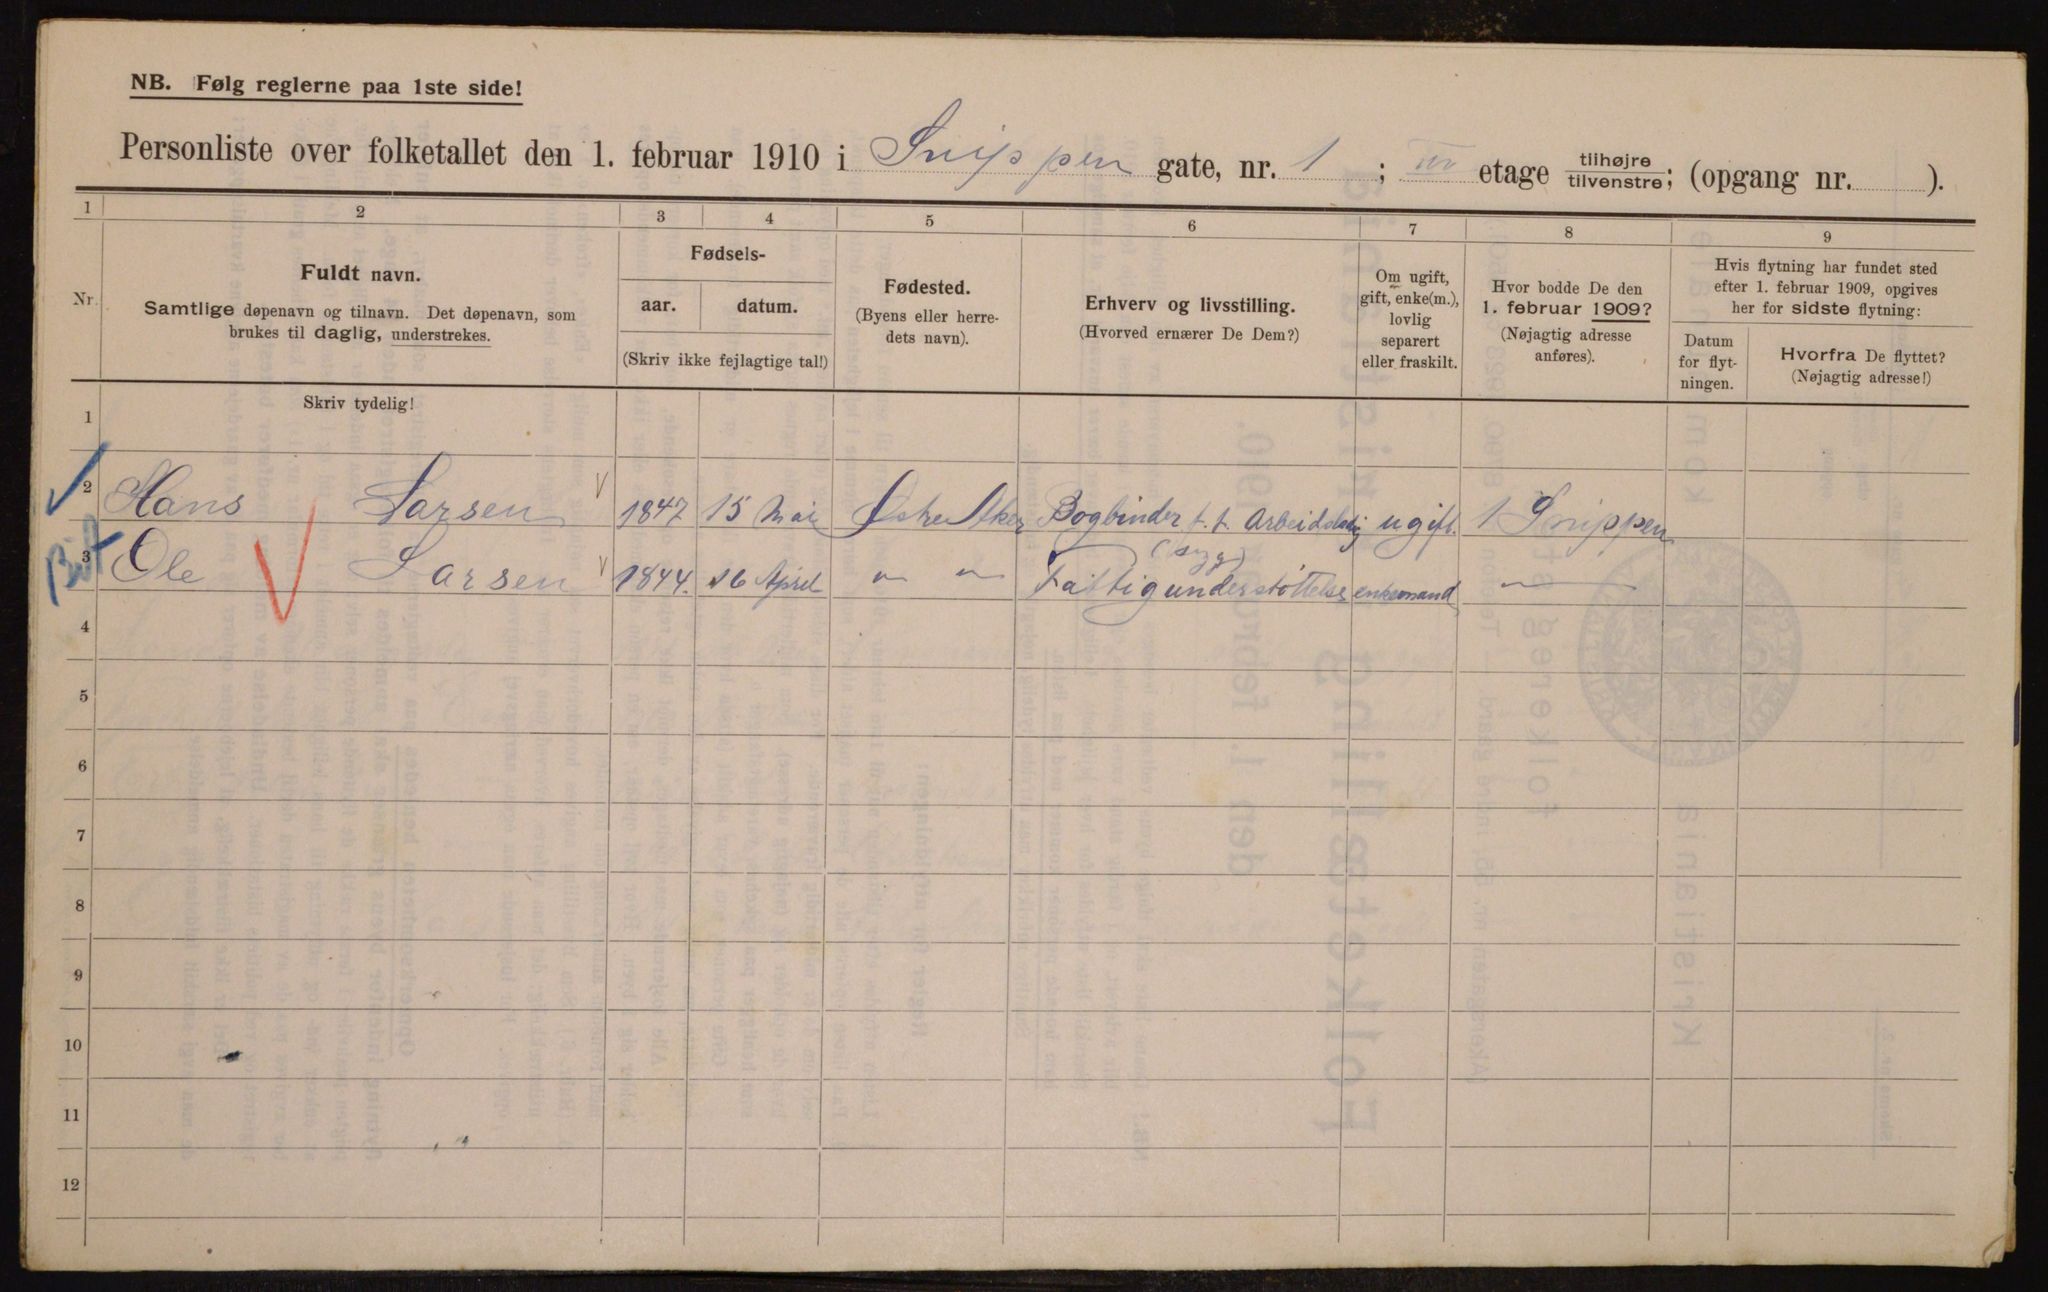 NB. Følg reglerne paa 1ste side!
Personliste over folketallet den 1. februar 1910 i Snippen gate, nr. 1 ; III etage tilhøjre/tilvenstre; (opgang nr. ).
1 2 3 4 5 6 7 8 9
Nr.
Fuldt navn.
Samtlige døpenavn og tilnavn. Det døpenavn, som
brukes til daglig, understrekes.
Skriv tydelig!
Fødsels-
aar. datum.
(Skriv ikke fejlagtige tal!)
Fødested.
(Byens eller herre-
dets navn).
Erhverv og livsstilling.
(Hvorved ernærer De Dem?)
Om ugift,
gift, enke(m.),
lovlig
separert
eller fraskilt.
Hvor bodde De den
1. februar 1909?
(Nøjagtig adresse
anføres).
Hvis flytning har fundet sted
efter 1. februar 1909, opgives
her for sidste flytning:
Datum
for flyt-
ningen.
Hvorfra De flyttet?
(Nøjagtig adresse!)
1
2 Hans Larsen 1847 15 Mai Østre Aker Bogbinder f. t. Arbeidsløs ugift. 1 Snippen
(syg)
3 Ole Larsen 1844. 16 April " " Fattigunderstøttelse enkemand "
4
5
6
7
8
9
10
11
12